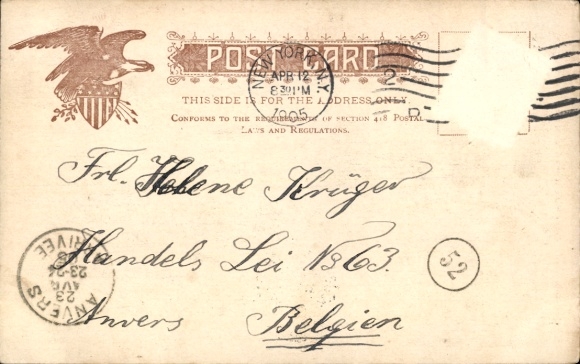 POST CARD
NEW YORK, N.Y.
APR 12
8 30 PM
1905
2
D
THIS SIDE IS FOR THE ADDRESS ONLY.
CONFORMS TO THE REQUIREMENTS OF SECTION 418 POSTAL
LAWS AND REGULATIONS.
Frl. Helene Krüger
Handels Lei No 63.
Anvers Belgien
52
ANVERS
23
AVR
23-24
05
ARRIVEE